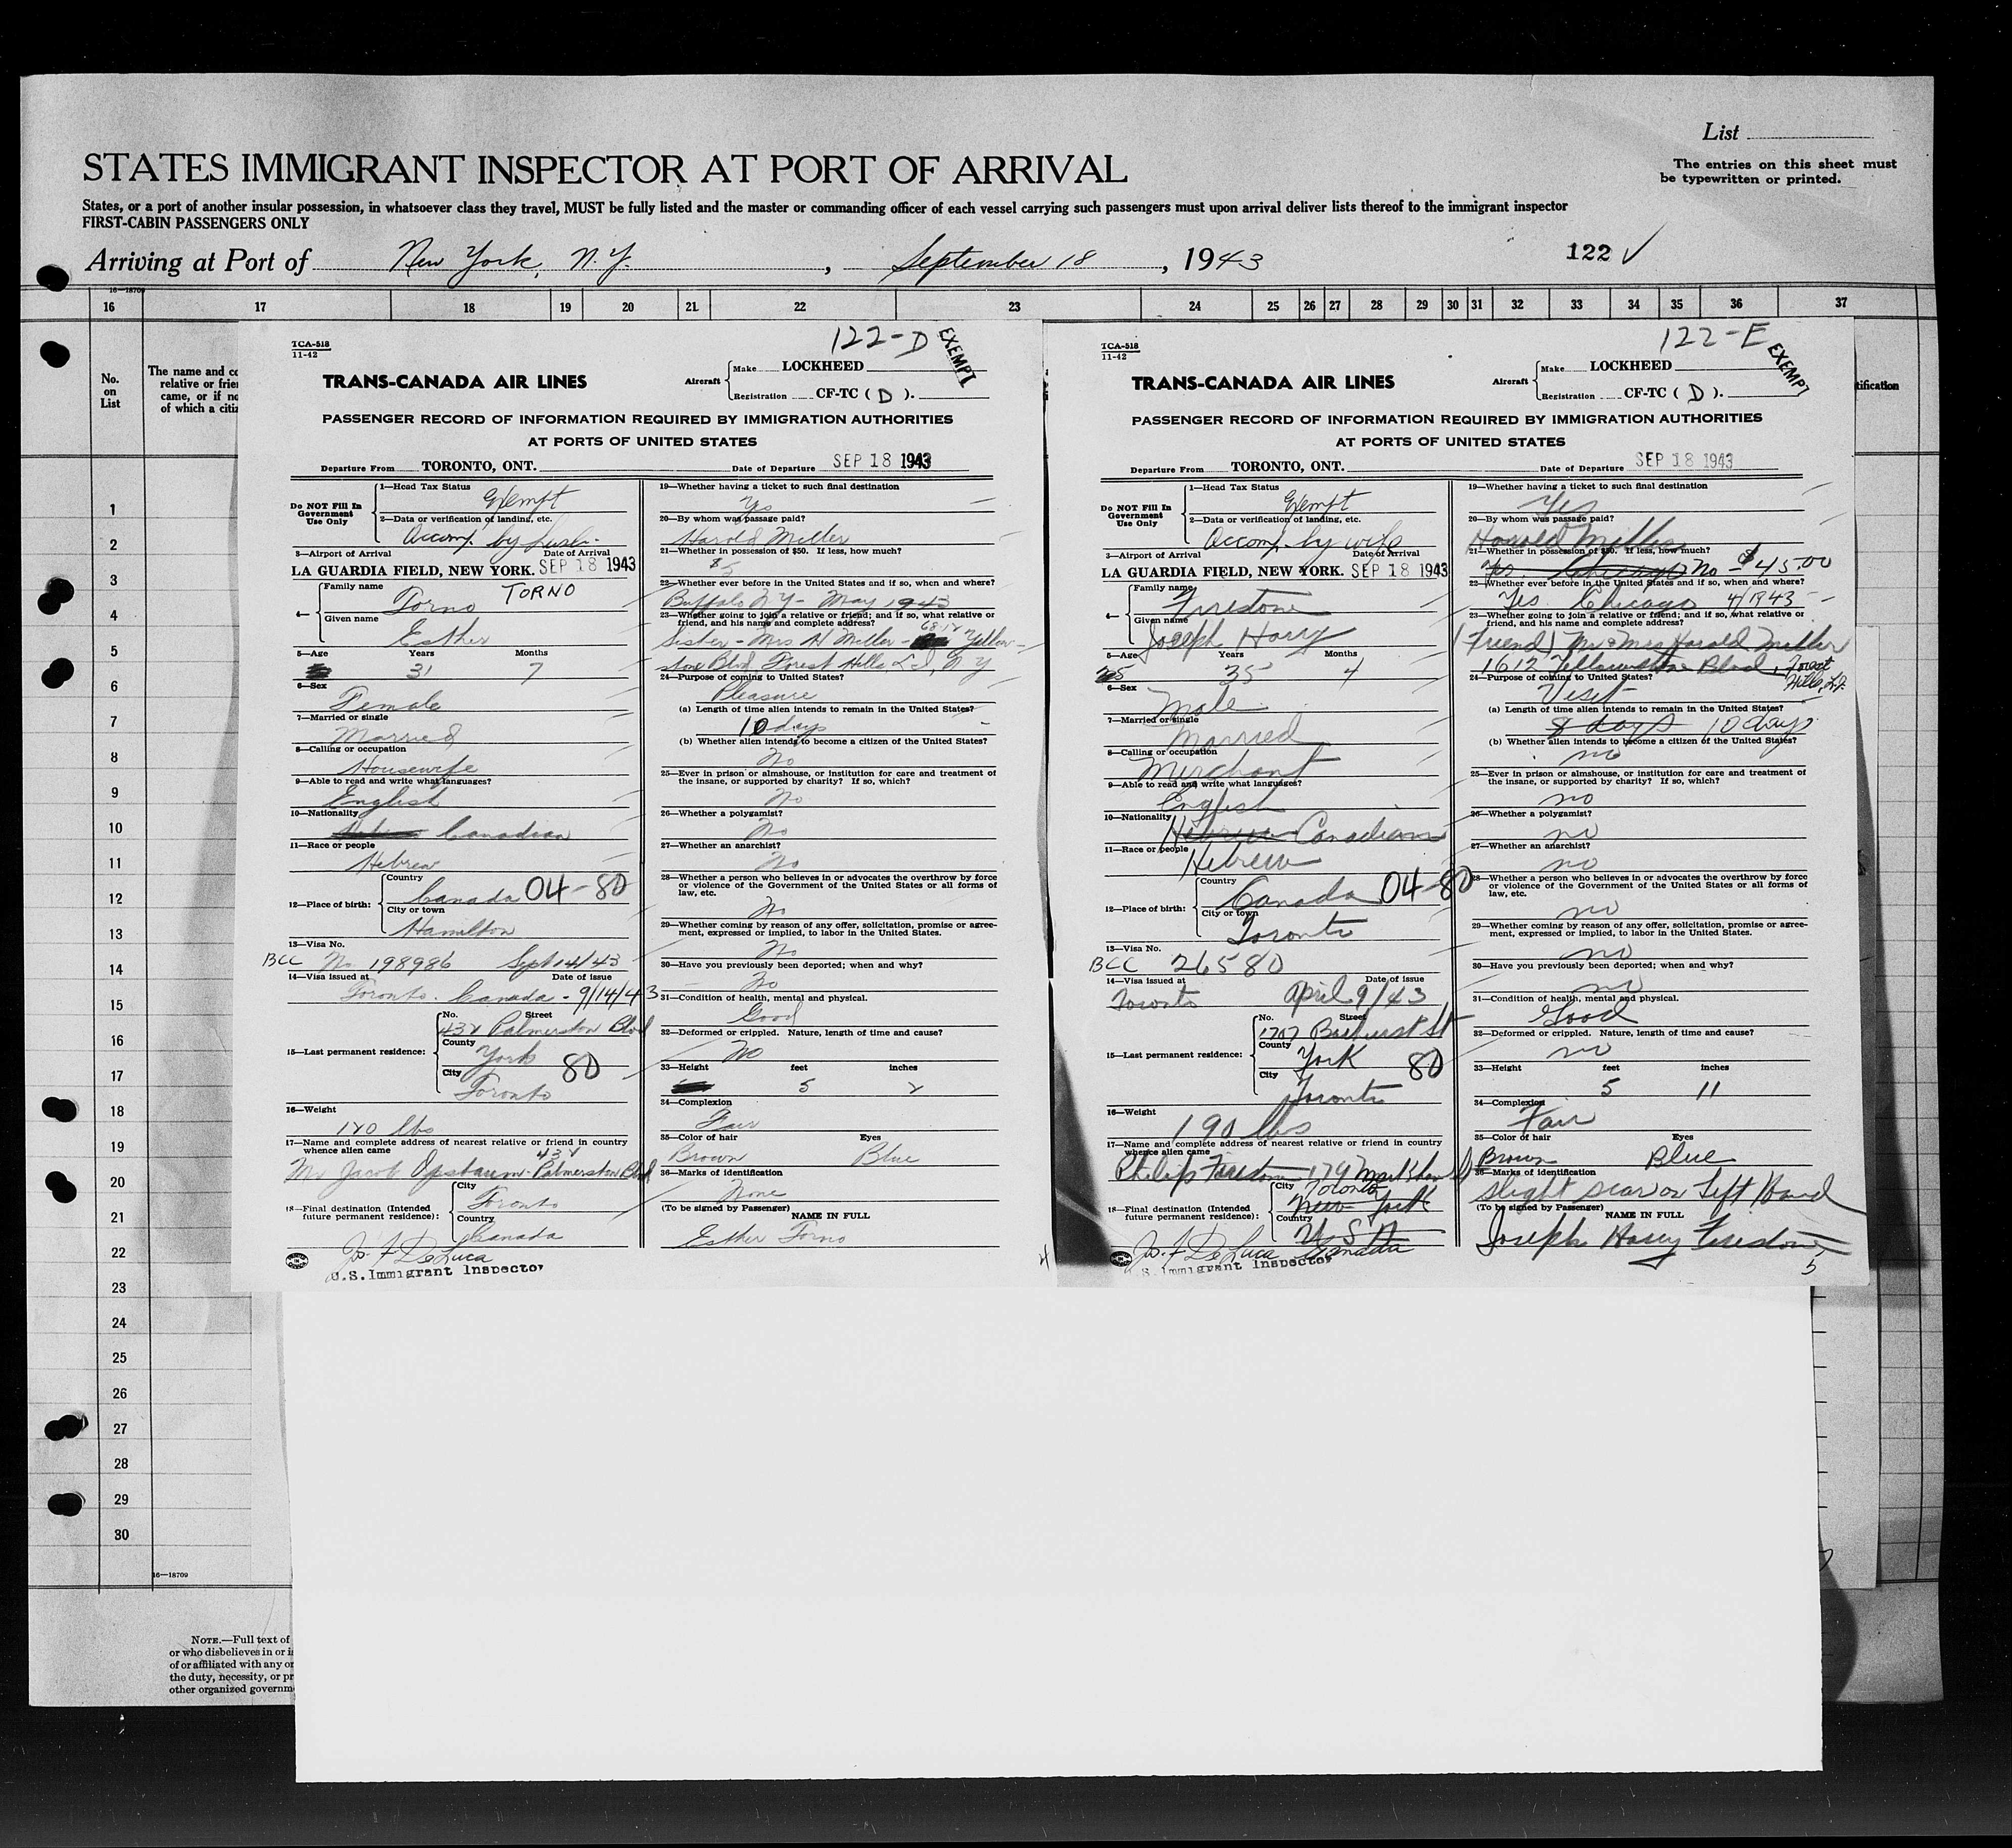 List
STATES IMMIGRANT INSPECTOR AT PORT OF ARRIVAL
The entries on this sheet must
be typewritten or printed.
States, or a port of another insular possession, in whatsoever class they travel, MUST be fully listed and the master or commanding officer of each vessel carrying such passengers must upon arrival deliver lists thereof to the immigrant inspector
FIRST-CABIN PASSENGERS ONLY
Arriving at Port of New York, N.Y., September 18, 1943
122 ✓
16—18709
16 17 18 19 20 21 22 23 24 25 26 27 28 29 30 31 32 33 34 35 36 37
No.
on
List
The name and co
relative or frie
came, or if no
of which a citiz
tification
1
2
3
4
5
6
7
8
9
10
11
12
13
14
15
16
17
18
19
20
21
22
23
24
25
26
27
28
29
30
16—18709
NOTE.—Full text of
or who disbelieves in or is
of or affiliated with any or
the duty, necessity, or pr
other organized governm
TCA-518
11-42
122-D
EXEMPT
TRANS-CANADA AIR LINES
Aircraft
Make LOCKHEED
Registration CF-TC (D).
PASSENGER RECORD OF INFORMATION REQUIRED BY IMMIGRATION AUTHORITIES
AT PORTS OF UNITED STATES
Departure From TORONTO, ONT. Date of Departure SEP 18 1943
Do NOT Fill In
Government
Use Only
1—Head Tax Status
Exempt
2—Data or verification of landing, etc.
Accomp. by
3—Airport of Arrival Date of Arrival
LA GUARDIA FIELD, NEW YORK. SEP 18 1943
4—
Family name
Torno TORNO
Given name
Esther
5—Age Years Months
31 7
6—Sex
Female
7—Married or single
Married
8—Calling or occupation
Housewife
9—Able to read and write what languages?
English
10—Nationality
Canadian
11—Race or people
Hebrew
12—Place of birth:
Country
Canada 04-80
City or town
Hamilton
13—Visa No.
BCC No 198986 Sept 14/43
14—Visa issued at Date of issue
Toronto. Canada - 9/14/43
15—Last permanent residence:
No. Street
432 Palmerston Blvd
County
York 80
City
Toronto
16—Weight
120 lbs
17—Name and complete address of nearest relative or friend in country
whence alien came
432
Mr Jacob Opsbaum - Palmerston Blvd
18—Final destination (Intended
future permanent residence):
City
Toronto
Country
Canada
Jos. F. DeLuca
U.S. Immigrant Inspector
19—Whether having a ticket to such final destination
Yes
20—By whom was passage paid?
Harold Miller
21—Whether in possession of $50. If less, how much?
22—Whether ever before in the United States and if so, when and where?
Buffalo N Y - May 1943
23—Whether going to join a relative or friend; and if so, what relative or
friend, and his name and complete address?
6812
Sister - Mrs H Miller - Yellow-
stone Blvd Forest Hills L I, N Y
24—Purpose of coming to United States?
Pleasure
(a) Length of time alien intends to remain in the United States?
10 days
(b) Whether alien intends to become a citizen of the United States?
No
25—Ever in prison or almshouse, or institution for care and treatment of
the insane, or supported by charity? If so, which?
No
26—Whether a polygamist?
No
27—Whether an anarchist?
No
28—Whether a person who believes in or advocates the overthrow by force
or violence of the Government of the United States or all forms of
law, etc.
No
29—Whether coming by reason of any offer, solicitation, promise or agree-
ment, expressed or implied, to labor in the United States.
No
30—Have you previously been deported; when and why?
No
31—Condition of health, mental and physical.
Good
32—Deformed or crippled. Nature, length of time and cause?
No
33—Height feet inches
5 2
34—Complexion
Fair
35—Color of hair Eyes
Brown Blue
36—Marks of identification
None
(To be signed by Passenger) NAME IN FULL
Esther Torno
4
TCA-518
11-42
122-E
EXEMPT
TRANS-CANADA AIR LINES
Aircraft
Make LOCKHEED
Registration CF-TC (D).
PASSENGER RECORD OF INFORMATION REQUIRED BY IMMIGRATION AUTHORITIES
AT PORTS OF UNITED STATES
Departure From TORONTO, ONT. Date of Departure SEP 18 1943
Do NOT Fill In
Government
Use Only
1—Head Tax Status
Exempt
2—Data or verification of landing, etc.
Accomp. by wife
3—Airport of Arrival Date of Arrival
LA GUARDIA FIELD, NEW YORK. SEP 18 1943
4—
Family name
Firestone
Given name
Joseph Harry
5—Age Years Months
35 4
6—Sex
Male
7—Married or single
Married
8—Calling or occupation
Merchant
9—Able to read and write what languages?
English
10—Nationality
Hebrew Canadian
11—Race or people
Hebrew
12—Place of birth:
Country
Canada 04-80
City or town
Toronto
13—Visa No.
BCC 26580
14—Visa issued at Date of issue
Toronto April 9/43
15—Last permanent residence:
No. Street
1707 Bathurst St
County
York 80
City
Toronto
16—Weight
190 lbs
17—Name and complete address of nearest relative or friend in country
whence alien came
Philip Firestone 179 Markham St
18—Final destination (Intended
future permanent residence):
City
Toronto
New York
Country
U S A
Canada
Jos. F. DeLuca
U.S. Immigrant Inspector
19—Whether having a ticket to such final destination
Yes
20—By whom was passage paid?
Harold Miller
21—Whether in possession of $50. If less, how much?
Yes. Chicago No - $45.00
22—Whether ever before in the United States and if so, when and where?
Yes Chicago 4/1943
23—Whether going to join a relative or friend; and if so, what relative or
friend, and his name and complete address?
(Friend) Mr & Mrs Harold Miller
1612 Yellowstone Blvd, Forest
Hills, L.I.
24—Purpose of coming to United States?
Visit
(a) Length of time alien intends to remain in the United States?
8 days 10 days
(b) Whether alien intends to become a citizen of the United States?
no
25—Ever in prison or almshouse, or institution for care and treatment of
the insane, or supported by charity? If so, which?
no
26—Whether a polygamist?
no
27—Whether an anarchist?
no
28—Whether a person who believes in or advocates the overthrow by force
or violence of the Government of the United States or all forms of
law, etc.
no
29—Whether coming by reason of any offer, solicitation, promise or agree-
ment, expressed or implied, to labor in the United States.
no
30—Have you previously been deported; when and why?
no
31—Condition of health, mental and physical.
Good
32—Deformed or crippled. Nature, length of time and cause?
no
33—Height feet inches
5 11
34—Complexion
Fair
35—Color of hair Eyes
Brown Blue
36—Marks of identification
slight scar on left Hand
(To be signed by Passenger) NAME IN FULL
Joseph Harry Firestone
5